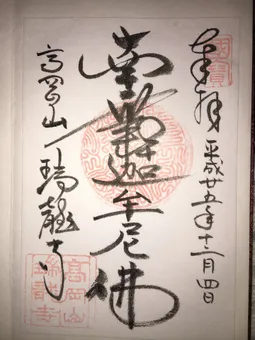 奉拝 平成廿五年十二月四日
南無釈迦牟尼佛
高岡山 瑞龍寺
國寶
高岡山
瑞龍寺